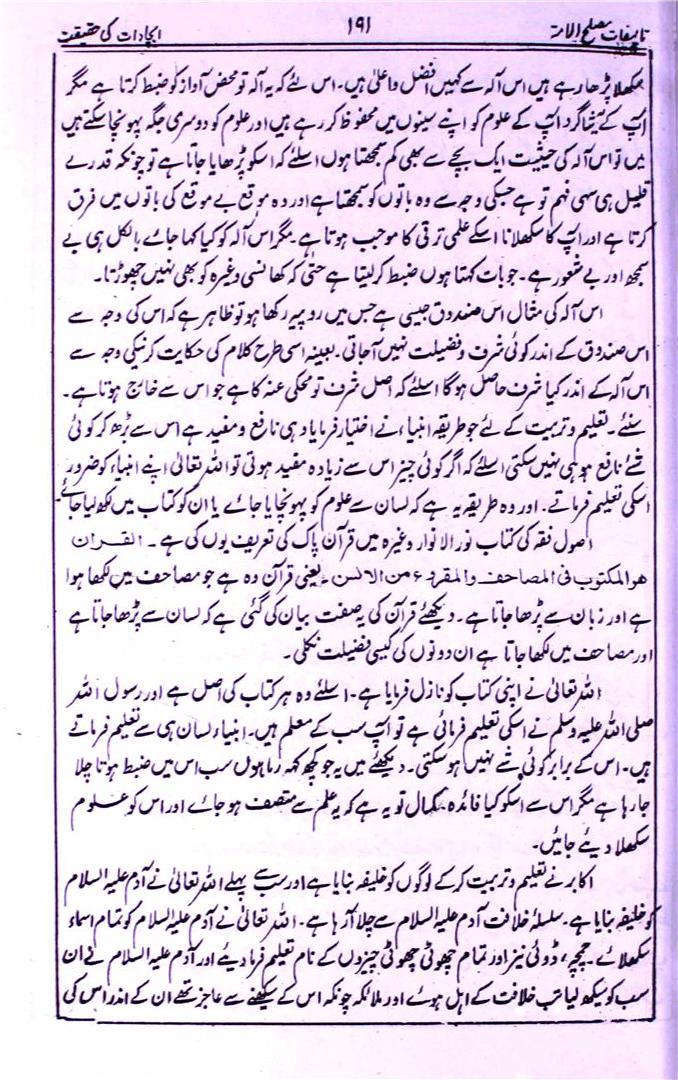 تالیفات مصلح الامۃ ۱۹۱ ایجادات کی حقیقت
سکھلا پڑھا رہے ہیں اس آلہ سے کہیں افضل و اعلیٰ ہیں۔ اس لئے کہ یہ آلہ تو محض آواز کو ضبط کرتا ہے مگر
آپ کے یہ شاگرد آپ کے علوم کو اپنے سینوں میں محفوظ کر رہے ہیں اور علوم کو دوسری جگہ پہونچا سکتے ہیں
میں تو اس آلہ کی حیثیت ایک بچے سے بھی کم سمجھتا ہوں اسلئے کہ اسکو پڑھایا جاتا ہے تو چونکہ قدرے
قلیل ہی سہی فہم تو ہے جسکی وجہ سے وہ باتوں کو سمجھتا ہے اور وہ موقع بے موقع کی باتوں میں فرق
کرتا ہے اور آپ کا سکھلانا اسکے علمی ترقی کا موجب ہوتا ہے مگر اس آلہ کو کیا کہا جائے بالکل ہی بے
سمجھ اور بے شعور ہے۔ جو بات کہتا ہوں ضبط کرلیتا ہے حتیٰ کہ کھانسی وغیرہ کو بھی نہیں چھوڑتا۔
اس آلہ کی مثال اس صندوق جیسی ہے جس میں روپیہ رکھا ہو تو ظاہر ہے کہ اس کی وجہ سے
اس صندوق کے اندر کوئی شرف و فضیلت نہیں آجاتی۔ بعینہ اسی طرح کلام کی حکایت کرنیکی وجہ سے
اس آلہ کے اندر کیا شرف حاصل ہوگا اسلئے کہ اصل شرف تو محکی عنہ کا ہے جو اس سے خارج ہوتا ہے۔
سنئے۔ تعلیم و تربیت کے لئے جو طریقہ انبیاء نے اختیار فرمایا وہی نافع و مفید ہے اس سے بڑھ کر کوئی
شئے نافع ہو ہی نہیں سکتی اسلئے کہ اگر کوئی چیز اس سے زیادہ مفید ہوتی تو اللہ تعالیٰ اپنے انبیاء کو ضرور
اسکی تعلیم فرماتے۔ اور وہ طریقہ یہ ہے کہ لسان سے علوم کو پہونچایا جائے یا ان کو کتاب میں لکھ لیا جائے۔
اصول فقہ کی کتاب نور الانوار وغیرہ میں قرآن پاک کی تعریف یوں کی ہے۔ القرآن
ھو المکتوب فی المصاحف والمقروء من الالسن۔ یعنی قرآن وہ ہے جو مصاحف میں لکھا ہوا
ہے اور زبان سے پڑھا جاتا ہے۔ دیکھئے قرآن کی یہ صفت بیان کی گئی ہے کہ لسان سے پڑھا جاتا ہے
اور مصاحف میں لکھا جاتا ہے ان دونوں کی کیسی فضیلت نکلی۔
اللہ تعالیٰ نے اپنی کتاب کو نازل فرمایا ہے۔ اسلئے وہ ہر کتاب کی اصل ہے اور رسول اللہ
صلی اللہ علیہ وسلم نے اسکی تعلیم فرمائی ہے تو آپ سب کے معلم ہیں۔ انبیاء لسان ہی سے تعلیم فرماتے
ہیں۔ اس کے برابر کوئی شے نہیں ہوسکتی۔ دیکھئے میں یہ جو کچھ کہہ رہا ہوں سب اس میں ضبط ہوتا چلا
جا رہا ہے مگر اس سے اسکو کیا فائدہ۔ کمال تو یہ ہے کہ یہ علم سے متصف ہو جائے اور اس کو علوم
سکھلا دیئے جائیں۔
اکابر نے تعلیم و تربیت کرکے لوگوں کو خلیفہ بنایا ہے اور سب سے پہلے اللہ تعالیٰ نے آدم علیہ السلام
کو خلیفہ بنایا ہے۔ سلسلۂ خلافت آدم علیہ السلام سے چلا آرہا ہے۔ اللہ تعالیٰ نے آدم علیہ السلام کو تمام اسماء
سکھلائے۔ چمچہ، ڈوئی نیز اور تمام چھوٹی چھوٹی چیزوں کے نام تعلیم فرما دیئے اور آدم علیہ السلام نے ان
سب کو سیکھ لیا تب خلافت کے اہل ہوئے اور ملائکہ چونکہ اس کے سیکھنے سے عاجز تھے ان کے اندر اس کی